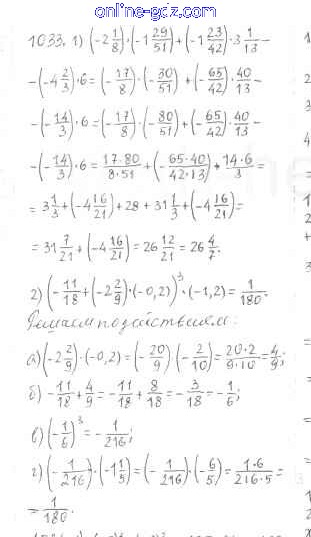 online-gdz.com
1033. 1) (-2 1/8)·(-1 29/51)+(-1 23/42)·3 1/13-
-(-4 2/3)·6=(-17/8)·(-30/51)+(-65/42)·40/13-
-(-14/3)·6=(-17/8)·(-80/51)+(-65/42)·40/13-
-(-14/3)·6=17·80/8·51+(-65·40/42·13)+14·6/3=
=3 1/3+(-4 16/21)+28=31 1/3+(-4 16/21)=
=31 7/21+(-4 16/21)=26 12/21=26 4/7.
2) (-11/18+(-2 2/9)·(-0,2))³·(-1,2)=1/180.
Решаем по действиям:
а) (-2 2/9)·(-0,2)=(-20/9)·(-2/10)=20·2/9·10=4/9;
б) -11/18+4/9=-11/18+8/18=-3/18=-1/6;
в) (-1/6)³=-1/216;
г) (-1/216)·(-1 1/5)=(-1/216)·(-6/5)=1·6/216·5=
=1/180.